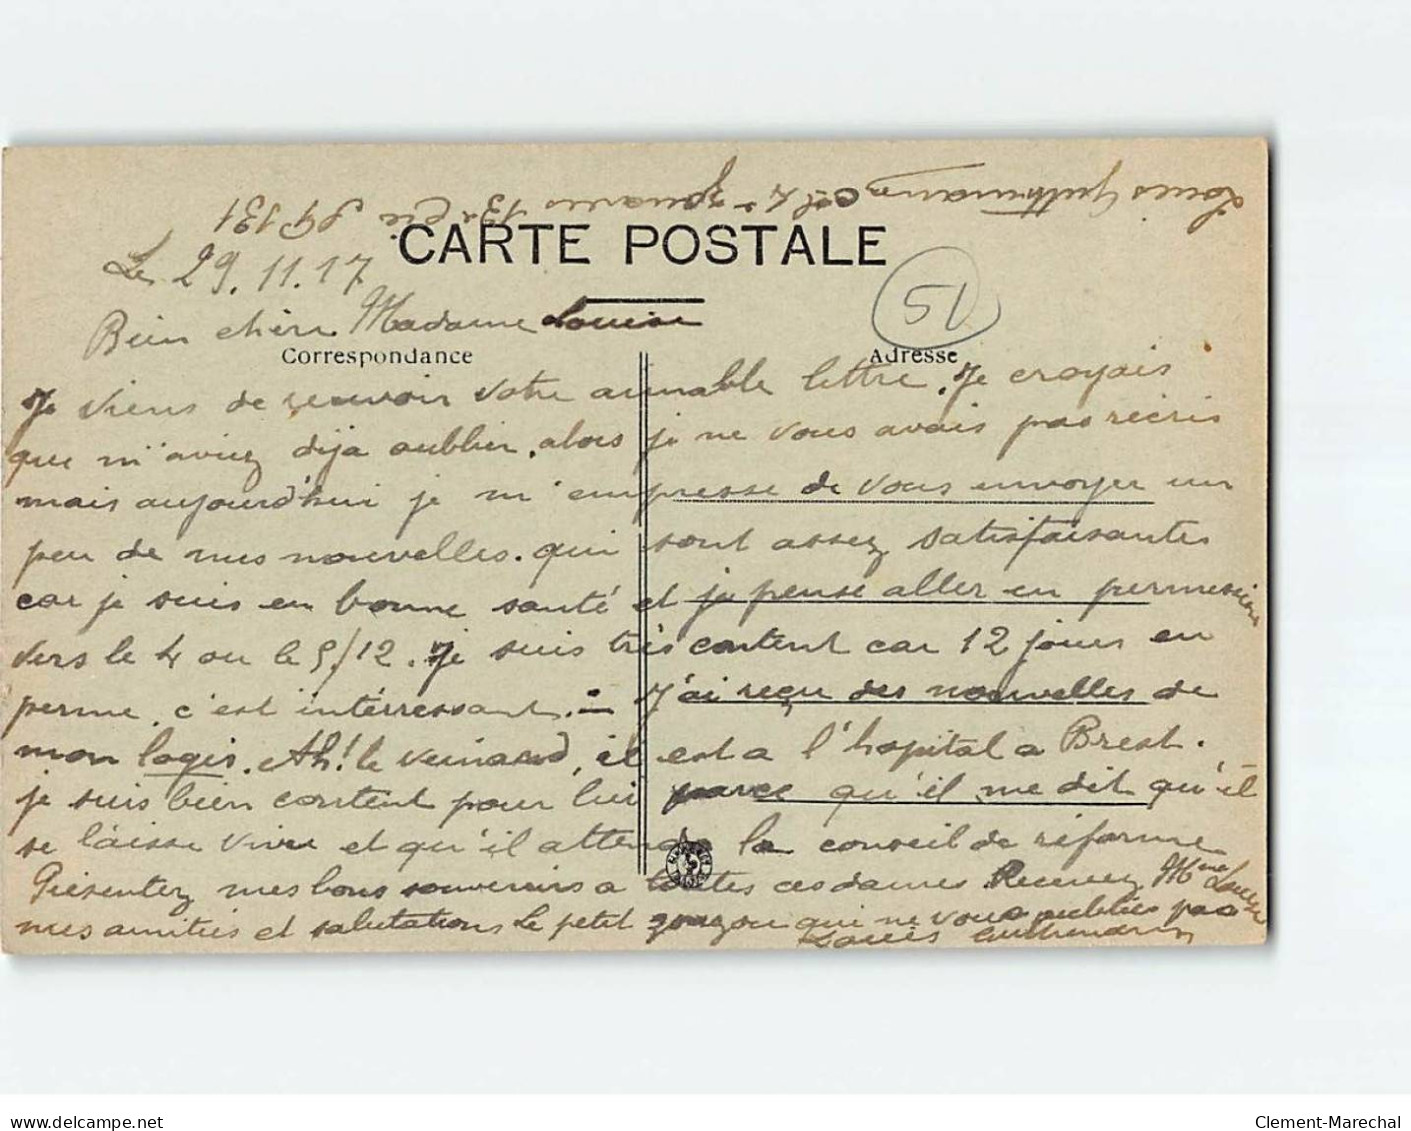 Louis Guthmann cal 4e zouaves 13e Cie SP 131
CARTE POSTALE
Le 29.11.17
51
Bien chère Madame Louise
Correspondance
Adresse
Je viens de recevoir votre aimable lettre. Je croyais
que m'aviez déja oublier, alors je ne vous avais pas récris
mais aujourd'hui je m'empresse de vous envoyer un
peu de mes nouvelles. qui sont assez satisfaisantes
car je suis en bonne santé et je pense aller en permission
vers le 4 ou le 5/12. Je suis très content car 12 jours en
perme, c'est intérressant. – J'ai reçu des nouvelles de
mon logis. Ah! le veinard, il est a l'hopital a Brest.
je suis bien content pour lui parce qu'il me dit qu'il
se laisse vivre et qu'il attend le conseil de réforme
Présentez mes bons souvenirs a toutes ces dames Recevez Mme Louise
mes amitiés et salutations Le petit zouzou qui ne vous oublies pas
Louis Guthmann
www.delcampe.net
Clement-Marechal